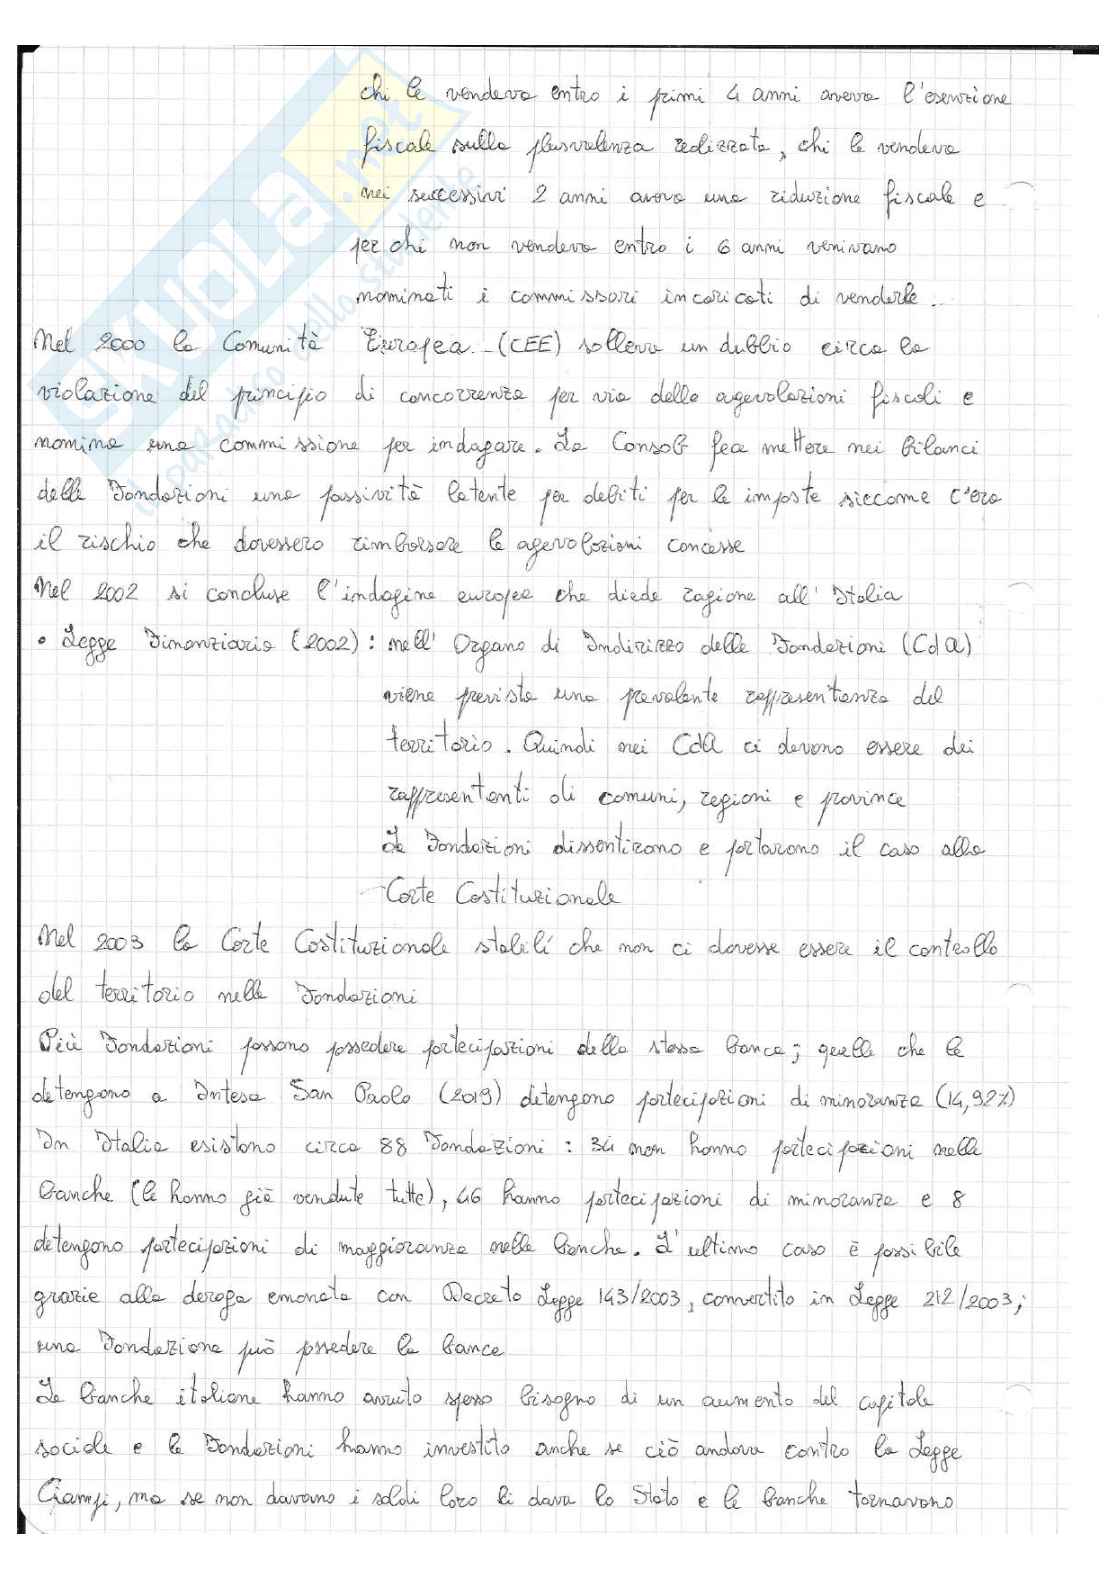 chi le vendeva entro i primi 4 anni aveva l'esenzione
fiscale sulla plusvalenza realizzata, chi le vendeva
nei successivi 2 anni aveva una riduzione fiscale e
per chi non vendeva entro i 6 anni venivano
nominati i commissari incaricati di venderle.
Nel 2000 la Comunità Europea (CEE) solleva un dubbio circa la
violazione del principio di concorrenza per via delle agevolazioni fiscali e
nomina una commissione per indagare. La Consob fece mettere nei bilanci
delle Fondazioni una passività latente per debiti per le imposte siccome c'era
il rischio che dovessero rimborsare le agevolazioni concesse
Nel 2002 si concluse l'indagine europea che diede ragione all'Italia
• Legge Finanziaria (2002): nell'Organo di Indirizzo delle Fondazioni (CdA)
viene prevista una prevalente rappresentanza del
territorio. Quindi nei CdA ci devono essere dei
rappresentanti di comuni, regioni e province
Le Fondazioni dissentirono e portarono il caso alla
Corte Costituzionale
Nel 2003 la Corte Costituzionale stabilì che non ci dovesse essere il controllo
del territorio nelle Fondazioni
Più Fondazioni possono possedere partecipazioni della stessa banca; quelle che le
detengono a Intesa San Paolo (2019) detengono partecipazioni di minoranza (14,92%)
In Italia esistono circa 88 Fondazioni: 34 non hanno partecipazioni nelle
banche (le hanno già vendute tutte), 46 hanno partecipazioni di minoranza e 8
detengono partecipazioni di maggioranza nelle banche. L'ultimo caso è possibile
grazie alla deroga emanata con Decreto Legge 143/2003, convertito in Legge 212/2003;
una Fondazione può possedere la banca
Le banche italiane hanno avuto spesso bisogno di un aumento del capitale
sociale e le Fondazioni hanno investito anche se ciò andava contro la Legge
Ciampi, ma se non davano i soldi loro li dava lo Stato e le banche tornavano
SKUOLA.net